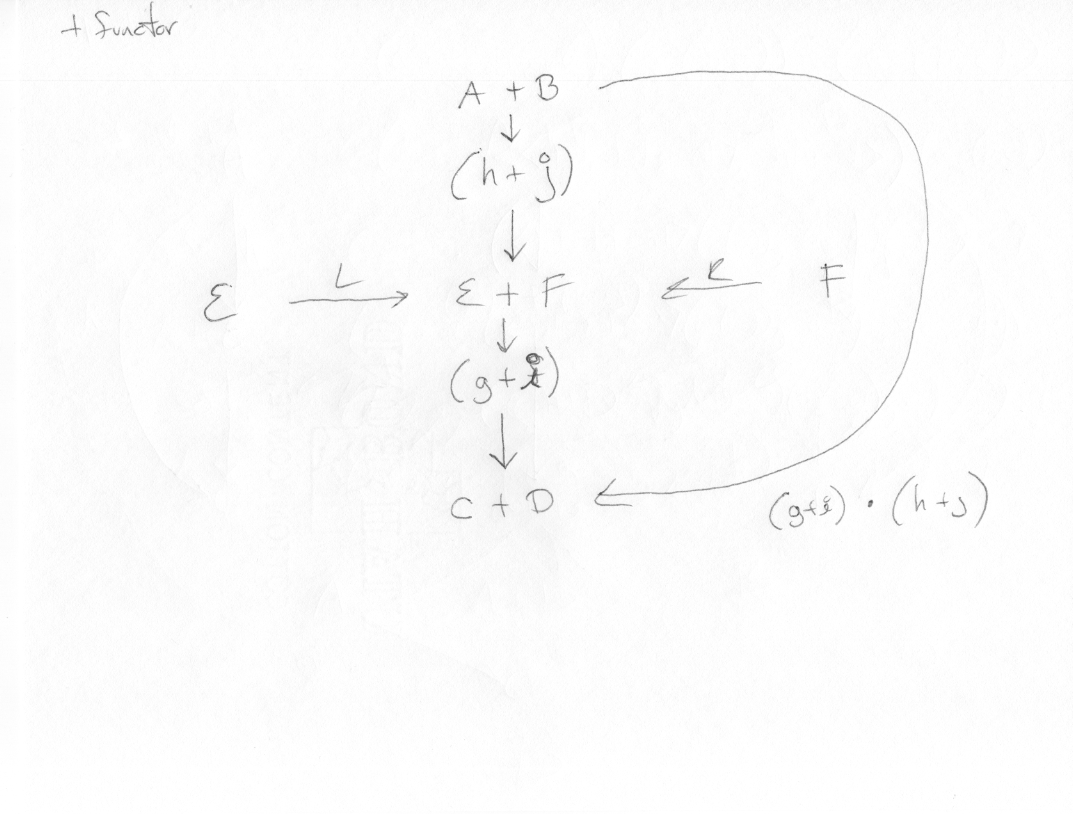 + functor
A + B
(h + j)
L
R
E
E + F
F
(g + i)
C + D
(g+i) • (h+j)